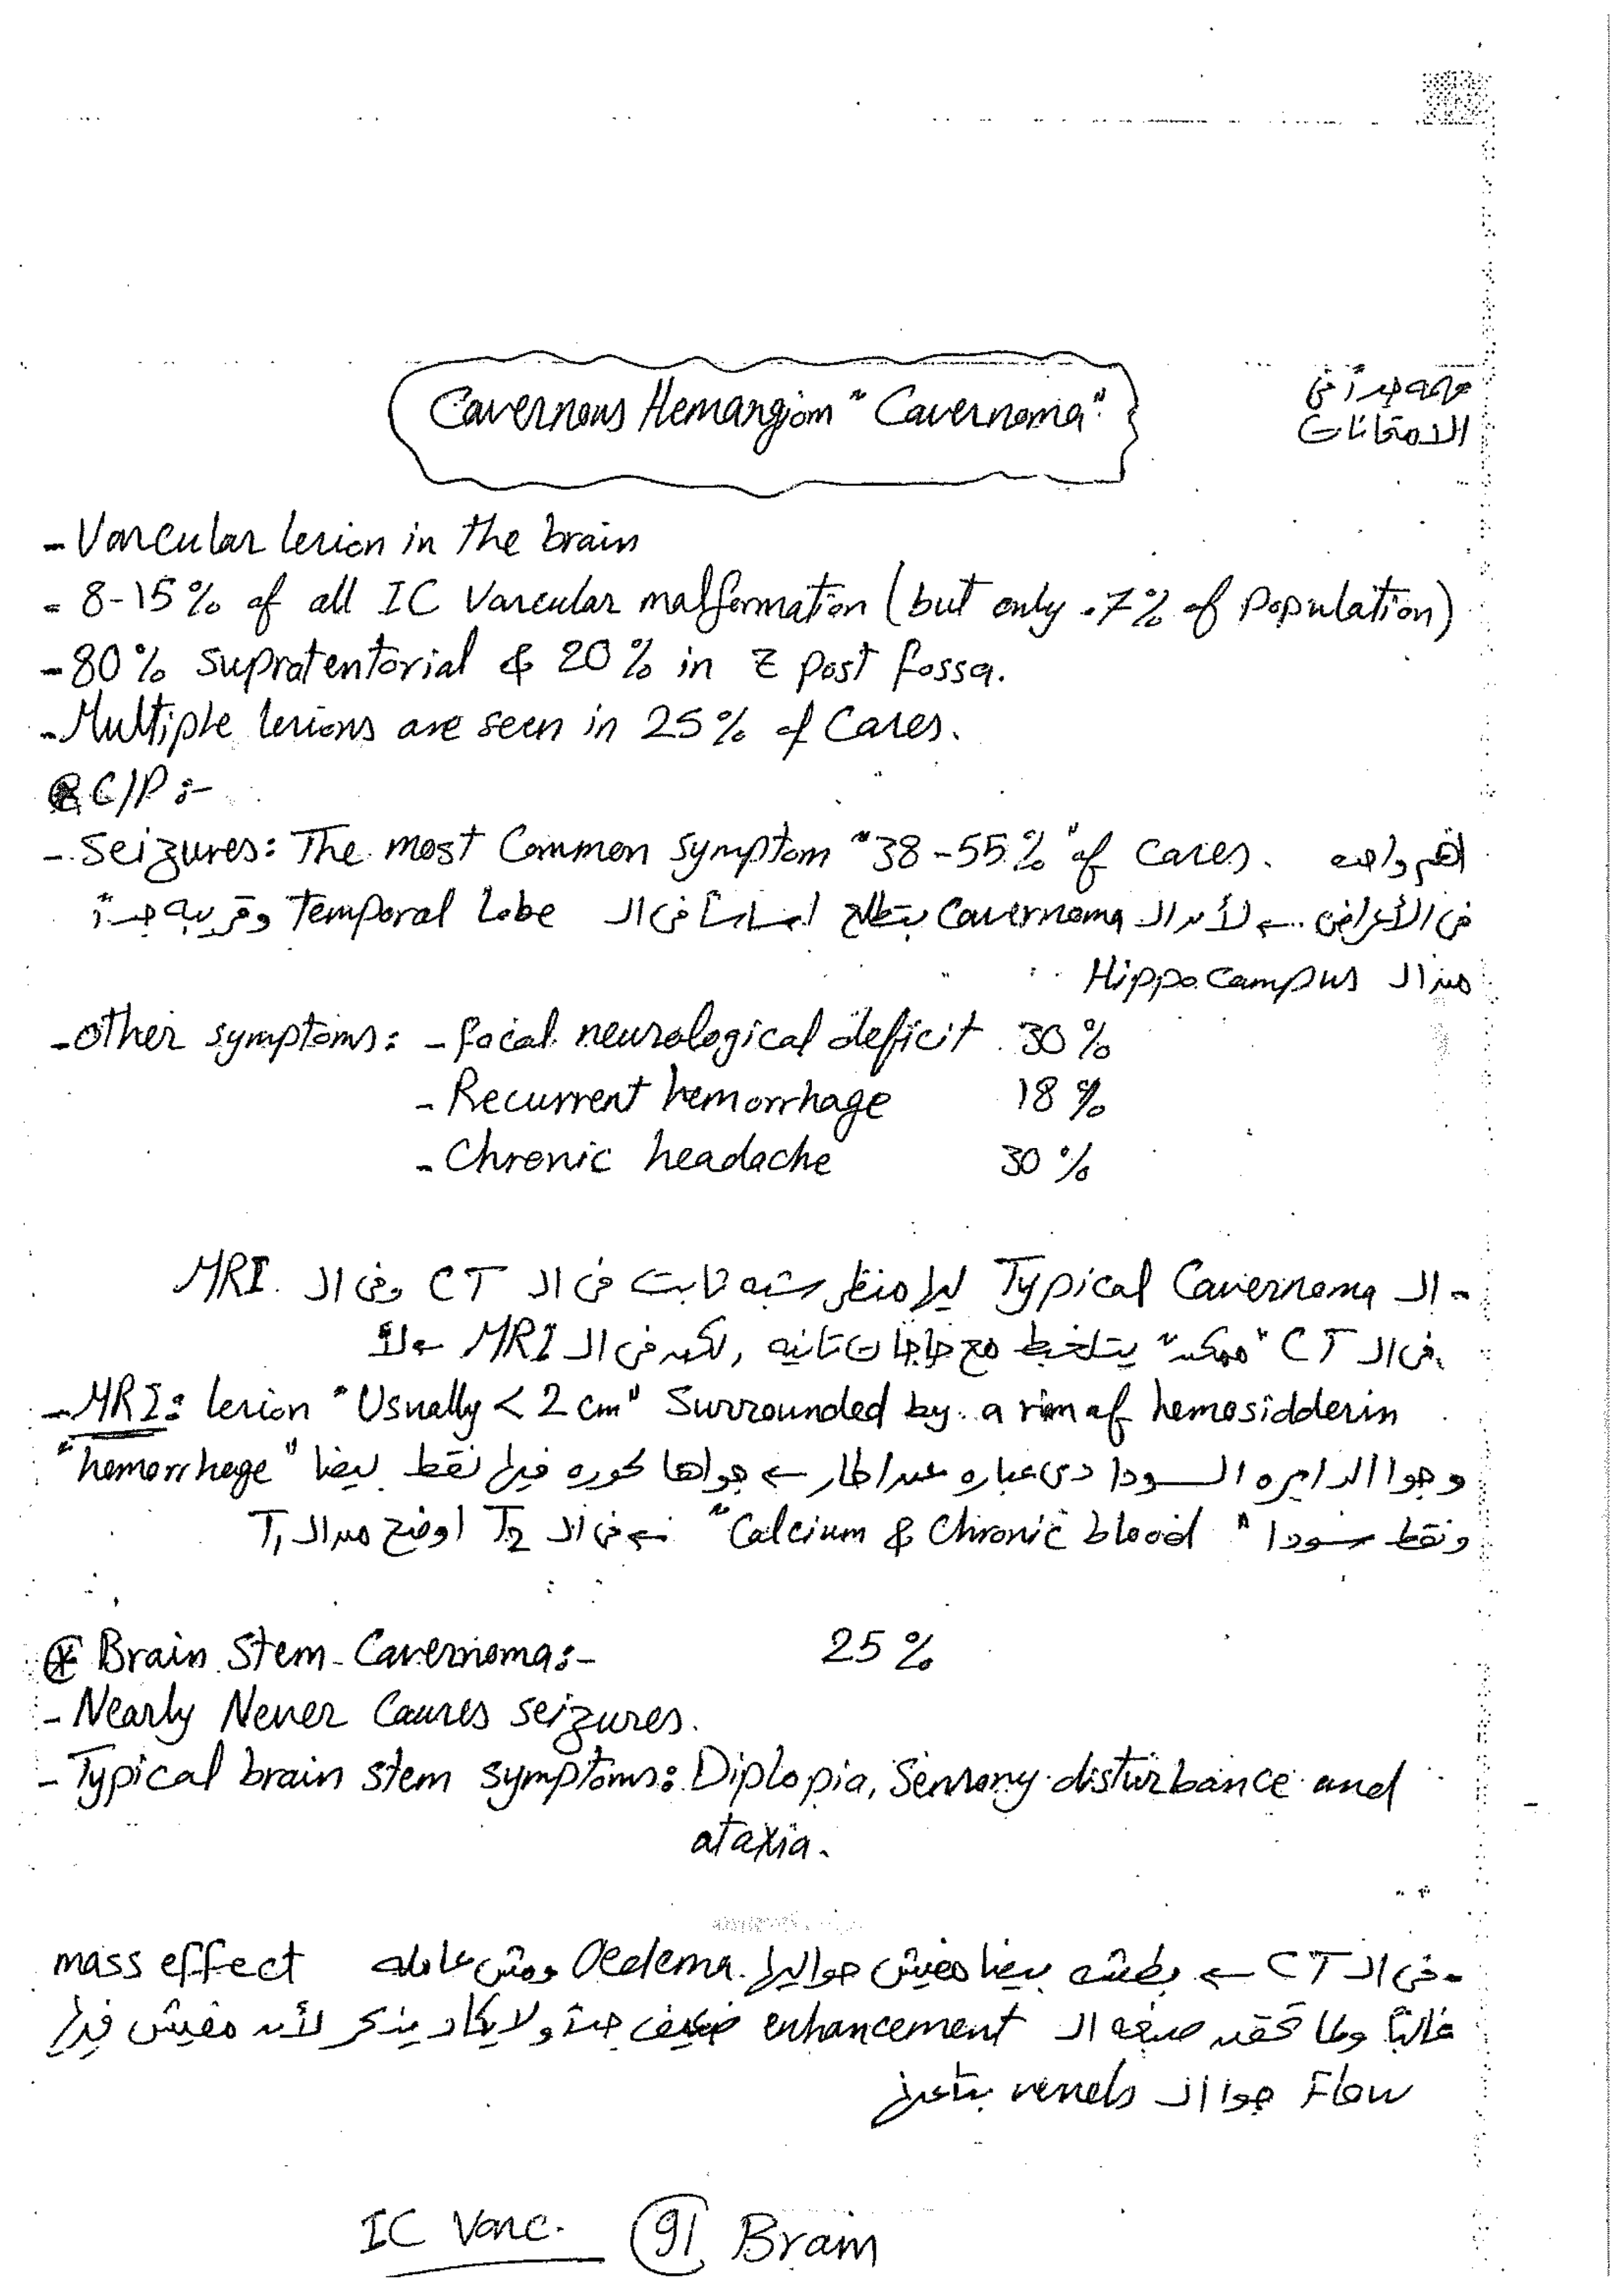 Cavernous Hemangiom "Cavernoma"
مهمه جداً فى
الامتحانات
- Vascular lesion in the brain
- 8-15% of all IC Vascular malformation (but only .7% of Population)
- 80% supratentorial & 20% in Z post fossa.
- Multiple lesions are seen in 25% of Cases.
C/P:-
- Seizures: The most Common symptom "38-55%" of cases. اهم واحده
فى الأعراض ← لأن الـ Cavernoma بتطلع اساساً فى الـ Temporal Lobe وقريبه جداً
من الـ Hippocampus
- Other symptoms: - focal neurological deficit 30%
- Recurrent hemorrhage 18%
- Chronic headache 30%
- الـ Typical Cavernoma ليها منظر شبه ثابت فى الـ CT وفى الـ MRI.
فى الـ CT "ممكن" يتلخبط مع حاجات تانيه, لكن فى الـ MRI ← لأ
- MRI: lesion "Usually < 2 cm" Surrounded by a rim of hemosidderin
وجوا الدايره السودا دى عباره عن اطار ← جواها كوره فيها نقط بيضا "hemorrhage"
ونقط سودا "Calcium & Chronic blood" ← فى الـ T2 اوضح من الـ T1
* Brain Stem Cavernoma:- 25%
- Nearly Never Causes seizures.
- Typical brain stem symptoms: Diplopia, Sensory disturbance and
ataxia.
- فى الـ CT ← بطشه بيضا مفيش حواليها Oedema ومش عامله mass effect
غالباً ولما تحقن صبغه الـ enhancement ضعيف جداً ولا يكاد يذكر لأن مفيش فيها
Flow جوا الـ vessels بتاعتها
IC Vasc. 91 Brain